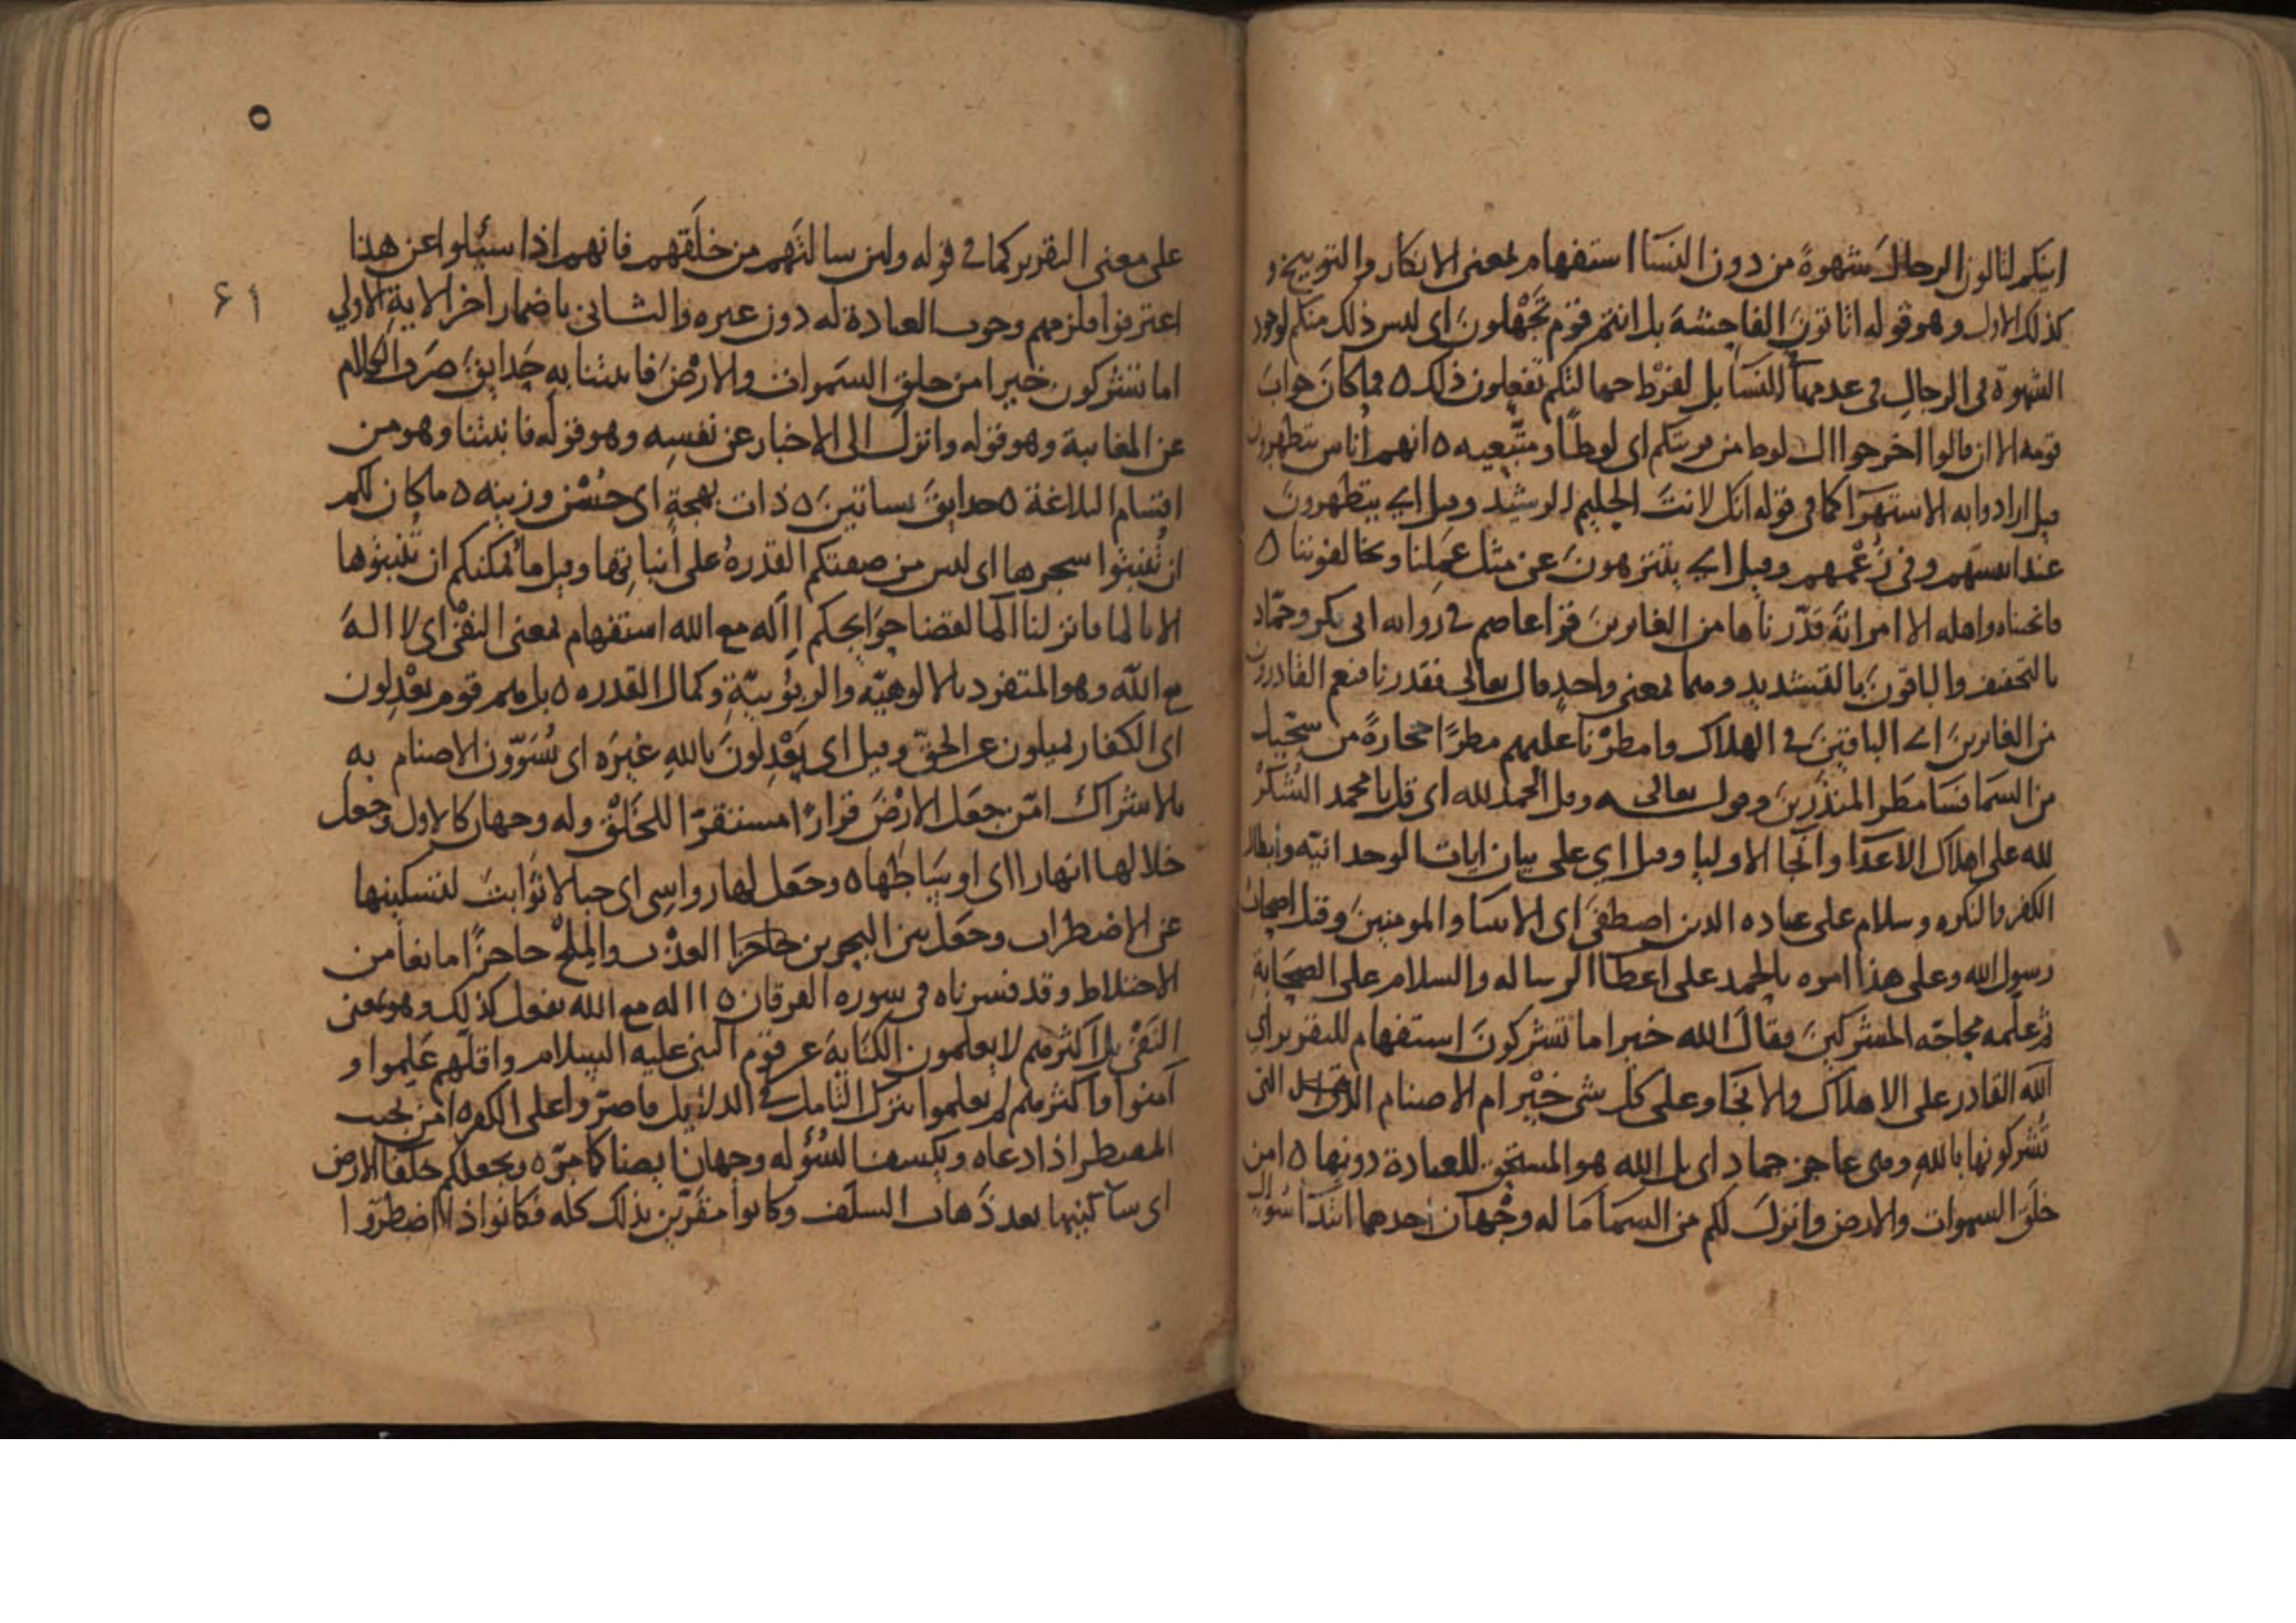 اينكم لتاتون الرجال شهوةً من دون النسَآ استفهام لمعنى الانكار والتوبيخ و
كذلك الاول وهو قوله اتاتون الفاحشة بل انتم قوم تَجْهلونَ اى ليس ذلك منكم لوجود
الشهوة فى الرجال فى عدمها للنسَآ بل لفرْط جهالتكم تفعلون ذلك ٥ فما كان جوابَ
قومه الا ان قالوا اخرجوا ال لوط من قريتكم اى لوطًا ومتّبعيه ٥ انهم اُناس يتطهرون
قيل ارادوا به الاستهزآ كما فى قوله انك لانت الحليم الرشيد وقيل اي يتطهرونَ
عند انفسهم وفى زُعْمهم وقيل اي يتنزهونَ عن مثل عَمِلنا ويخالفوننا ٥
فانجيناه واهله الا امراته قدّرناها من الغابرينَ قرا عاصم في رواية ابى بكر وحمّاد
بالتخفيف والباقون بالتشديد وهما لمعنى واحدٍ قال تعالى فقدرنا فنعم القادرون
من الغابرينَ اي الباقينَ في الهلاك وامطرْنا عليهم مطرًا حجارةً من سجّيل
من السما فسَا مطَر المنذَرينَ وقوله تعالى وقل الحمد لله اى قل يا محمد الشكرُ
لله على اهلاك الاعدَا وانجا الاوليا وقيل اي على بيان ايات الوحدانيّه وابطال
الكفر والنكره وسلام على عباده الذين اصطفىَ اى الانبيا والمومنينَ وقيل اصحاب
رسول الله وعلى هذا امره بالحمد على اعطا الرساله والسلام على الصحَابة
ثم علمه محاجّه المشركينَ فقالَ الله خير اما تشركونَ استفهام للتقرير اي
الله القادر على الاهلاك والانجا وعلى كل شى خيْر ام الاصنام التى
تُشركونها باللهِ وهى عاجز جمادٍ اى بل الله هو المستحق للعبادة دونها ٥ امن
خلَق السموات والارض وانزلَ لكم من السمآ ما له وجْهان احدهما ابتدآ سُوال
على معنى التقرير كما في قوله ولين سالتهم من خلقهم فانهم اذا سيُلوا عن هذا
اعترفوا فلزمهم وجوب العبادة له دون غيره والثانى باضمار اخر الاية الاولي
اما تشركون خير امن خلق السموات والارْضَ فانبتنا به حَدايقَ صرَف الكلام
عن المغايبة وهو قوله وانزلَ الى الاخبار عن نفسِه وهو قوله فانبتنا وهو من
اقسام البلاغة ٥ حدايقَ بساتينَ ٥ ذات بهجةٍ اى حُسْن وزينه ٥ ما كان لكم
ان تُنبتوا شجرها اى ليس من صفتكم القدرهُ على انباتِها وقيل ما يُمكنكم ان تُنبتوها
الا بالما فانزلنا الما لقضا حوَايجكم ااَله مع الله استفهام لمعنى النفْى اى لا الهَ
مع اللّه وهو المتفرد بالالوهيّه والربوُبيّةِ وكمال القدره ٥ بل هم قوم يعْدِلون
اى الكفار يميلون عن الحقّ وقيل اى يَعْدِلونَ باللهِ غيرَه اى يُسَوّون الاصنام به
بالاشراك امّن جعَل الارْضَ قرارًا مستقرّا للخَلْق وله وجهان كالاول وجعل
خلالها انهارا اى اوسَاطها ٥ وجعَل لها رواسِى اى جبالا ثوَابتَ لتسكينها
عن الاضطراب وجعَل بين البحرين حاجزا العذْب والمِلحْ حاجزًا مانعا من
الاختلاط وقد فسرناه فى سوره الفرقان ٥ االه مع الله يفعل كذلك وهو بمعنى
النَفْى بل اكثرهم لا يعلمون الكنَايةَ عن قوم النبى عليه السلام واقلّهم عَلِموا و
آمنوا واكثرهم لم يعلموا بترك التامل في الدلايل فاصرّوا على الكفر ٥ امن يجيب
المضطر اذا دعاه ويكشف السُوُله وجهان ايضا كما مرّ ٥ ويجعلكم خلفا الارض
اى ساكنيها بعد ذَهاب السلَف وكانوا مقرّين بذلك كله فكانوا اذا اضطرّوا